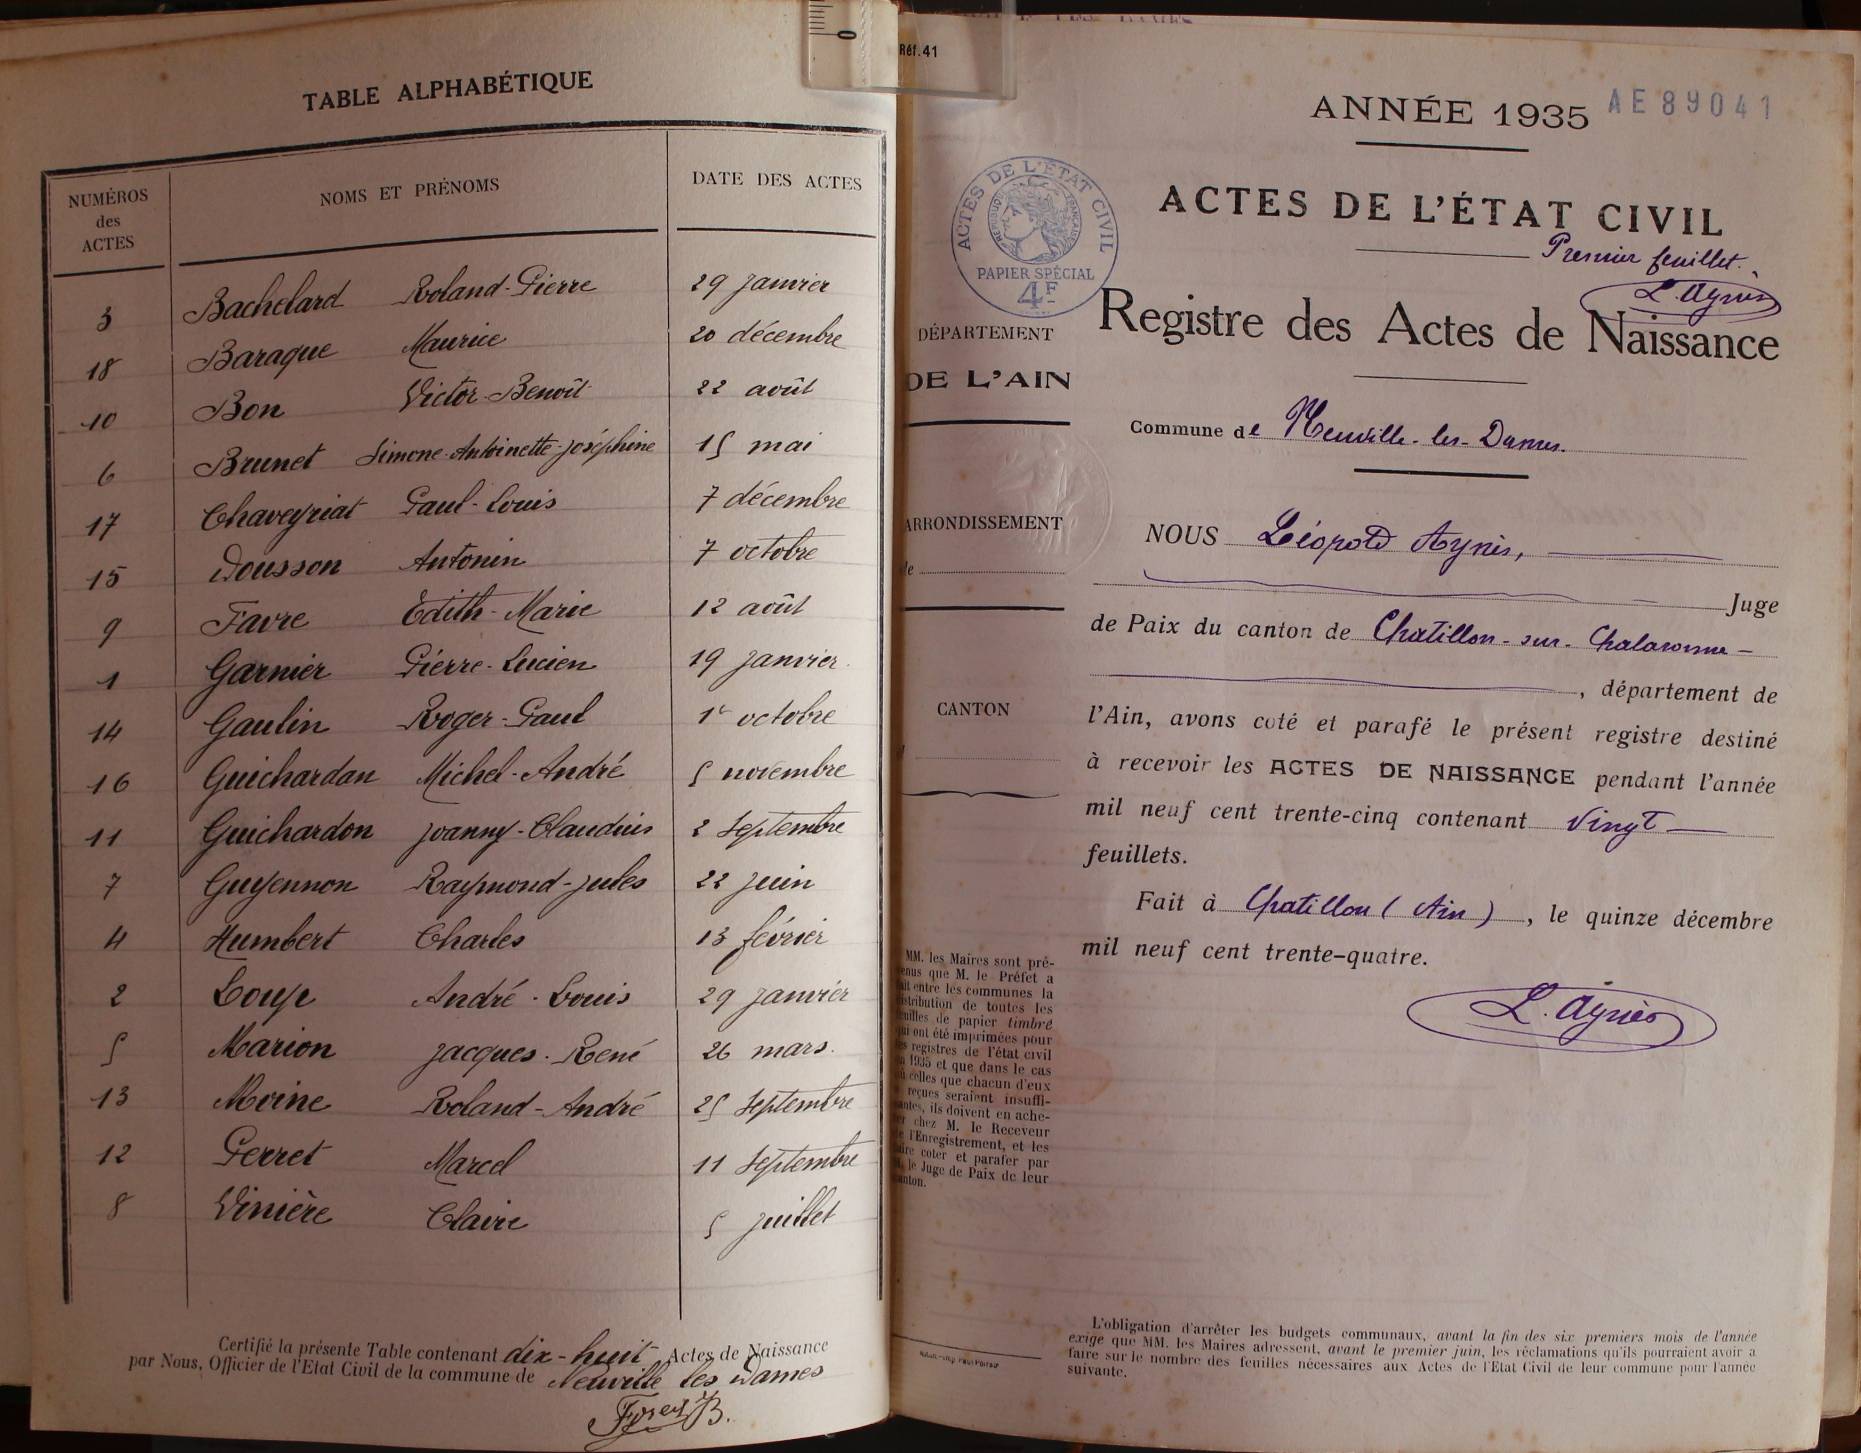 TABLE ALPHABÉTIQUE
NUMÉROS des ACTES NOMS ET PRÉNOMS DATE DES ACTES
3 Bachelard Roland-Pierre 29 janvier
18 Baraque Maurice 20 décembre
10 Bon Victor-Benoît 22 août
6 Brunet Simone-Antoinette-Joséphine 15 mai
17 Chaveyriat Paul-Louis 7 décembre
15 Dousson Antonin 7 octobre
9 Favre Edith-Marie 12 août
1 Garnier Pierre-Lucien 19 janvier
14 Gaulin Roger-Paul 1er octobre
16 Guichardan Michel-André 5 novembre
11 Guichardon Joanny-Claudius 2 septembre
7 Guyennon Raymond-Jules 22 juin
4 Humbert Charles 13 février
2 Loup André-Louis 29 janvier
5 Marion Jacques-René 26 mars.
13 Moine Roland-André 25 septembre
12 Perret Marcel 11 septembre
8 Vinière Claire 5 juillet
Certifié la présente Table contenant dix-huit Actes de Naissance
par Nous, Officier de l'Etat Civil de la commune de Neuville les Dames
0
Réf. 41
ACTES DE L'ÉTAT CIVIL
RÉPUBLIQUE FRANÇAISE
PAPIER SPÉCIAL
4F
DÉPARTEMENT
DE L'AIN
ARRONDISSEMENT
CANTON
MM. les Maires sont pré-
enus que M. le Préfet a
ait entre les communes la
istribution de toutes les
euilles de papier timbré
qui ont été imprimées pour
es registres de l'état civil
1935 et que dans le cas
celles que chacun d'eux
reçues seraient insuffi-
santes, ils doivent en ache-
er chez M. le Receveur
e l'Enregistrement, et les
aire coter et parafer par
le Juge de Paix de leur
anton.
ANNÉE 1935 AE89041
ACTES DE L'ÉTAT CIVIL
Premier feuillet.
L. Aynès
Registre des Actes de Naissance
Commune de Neuville-les-Dames.
NOUS Léopold Aynès,
Juge
de Paix du canton de Chatillon-sur-Chalaronne
, département de
l'Ain, avons coté et parafé le présent registre destiné
à recevoir les ACTES DE NAISSANCE pendant l'année
mil neuf cent trente-cinq contenant vingt
feuillets.
Fait à Chatillon (Ain), le quinze décembre
mil neuf cent trente-quatre.
L. Aynès
L'obligation d'arrêter les budgets communaux, avant la fin des six premiers mois de l'année
exige que MM. les Maires adressent, avant le premier juin, les réclamations qu'ils pourraient avoir a
faire sur le nombre des feuilles nécessaires aux Actes de l'Etat Civil de leur commune pour l'année
suivante.